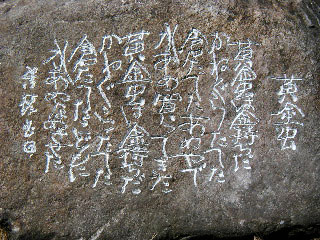 黄金虫
黄金虫は金持ちだ
かねぐらたてた
倉たてたあめやで
水あめ買つてきた
黄金虫は金持ちだ
かねぐらたてた
倉たてたこどもに
水あめなめさせた